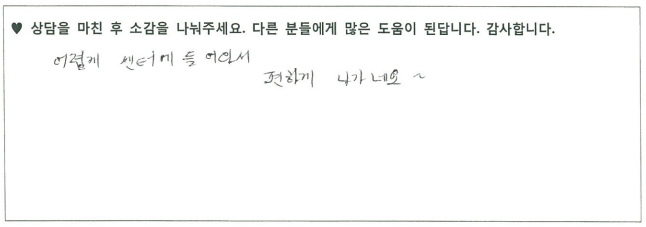 ♥ 상담을 마친 후 소감을 나눠주세요. 다른 분들에게 많은 도움이 된답니다. 감사합니다.
어렵게 센터에 들어와서
편하게 나가네요~